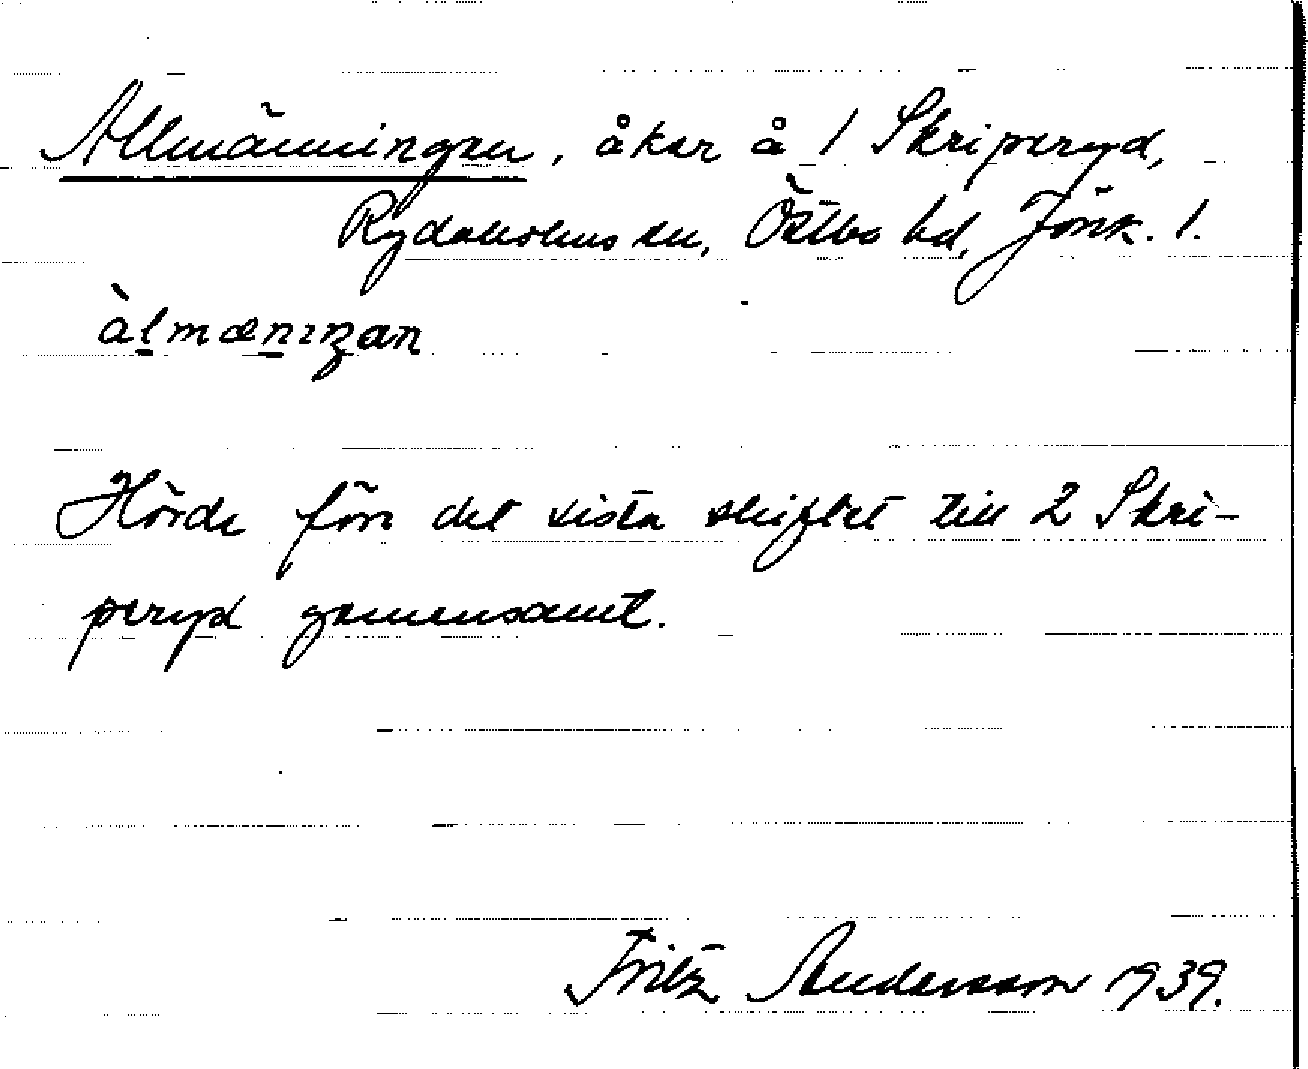 Allmänningen, åker å 1 Skriperyd,
Rydaholms sn, Östbo hd, Jönk. l.
àlmænıŋan
Hörde före det sista skiftet till 2 Skri-
peryd gemensamt.
Fritz Andersson 1939.